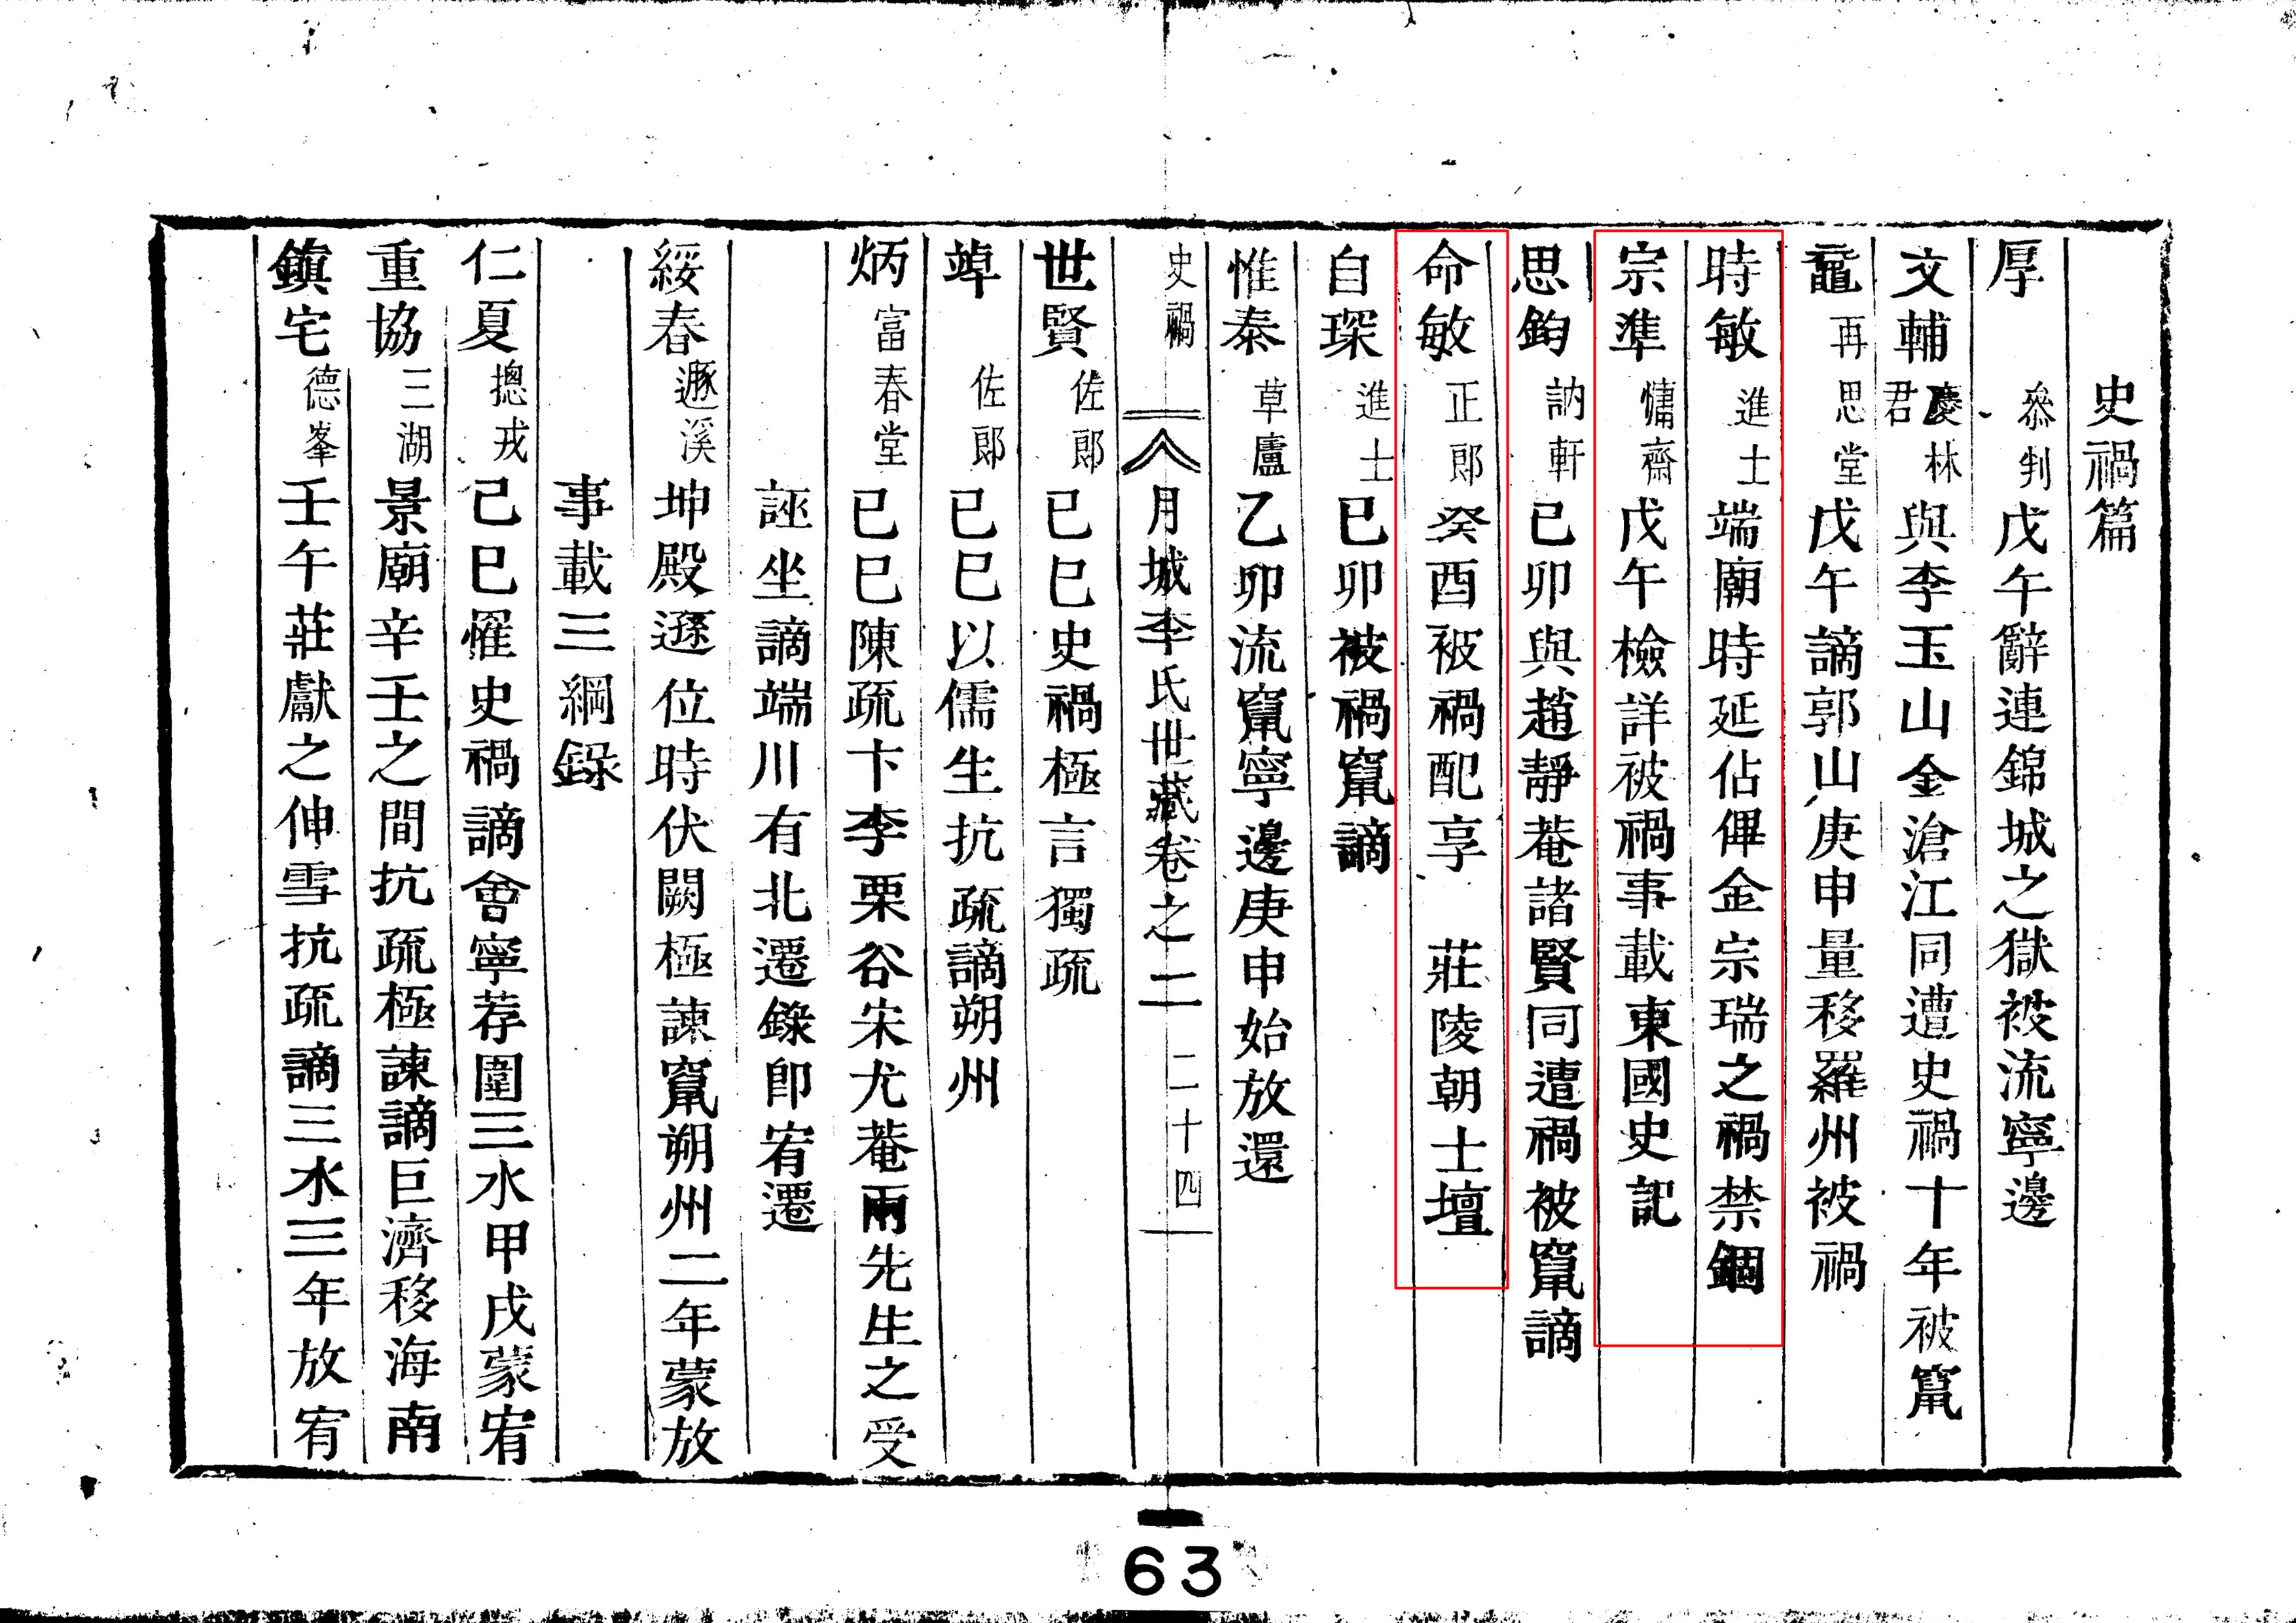 史禍篇
厚 叅判 戊午辭連錦城之獄被流寧邊
文輔 慶林君 與李玉山金滄江同遭史禍十年被竄
黿 再思堂 戊午謫郭山庚申量移羅州被禍
時敏 進士 端廟時延佔俾金宗瑞之禍禁錮
宗準 慵齋 戊午檢詳被禍事載東國史記
思鈞 訥軒 已卯與趙靜菴諸賢同遭禍被竄謫
命敏 正郎 癸酉被禍配享 莊陵朝士壇
自琛 進士 已卯被禍竄謫
惟泰 草廬 乙卯流竄寧邊庚申始放還
史禍 月城李氏世藏卷之二 二十四
世賢 佐郎 已巳史禍極言獨疏
䇬 佐郎 已巳以儒生抗疏謫朔州
炳 富春堂 已巳陳疏卞李栗谷宋尤菴兩先生之受
誣坐謫端川有北遷錄卽宥還
綏春 遯溪 坤殿遜位時伏闕極諫竄朔州二年蒙放
事載三綱錄
仁夏 摠戎 己巳罹史禍謫會寧荐圍三水甲戌蒙宥
重協 三湖 景廟辛壬之間抗疏極諫謫巨濟移海南
鎭宅 德峯 壬午莊獻之伸雪抗疏謫三水三年放宥
63